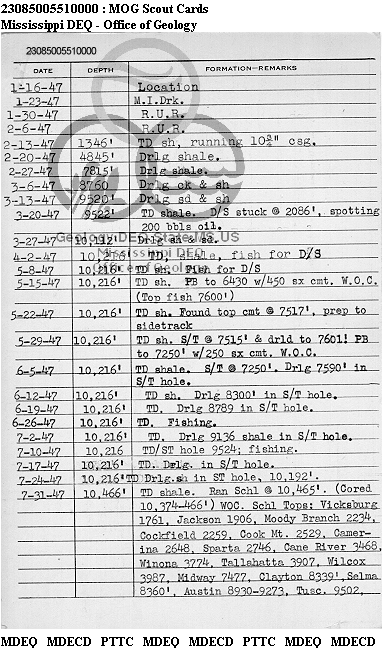 23085005510000 : MOG Scout Cards
Mississippi DEQ - Office of Geology
23085005510000
DATE DEPTH FORMATION—REMARKS
1-16-47 Location
1-23-47 M.I.Drk.
1-30-47 R.U.R.
2-6-47 R.U.R.
2-13-47 1346' TD sh, running 10¾" csg.
2-20-47 4845' Drlg shale.
2-27-47 7815' Drlg shale.
3-6-47 8760 Drlg ck & sh
3-13-47 9520' Drlg sd & sh
3-20-47 9522' TD shale. D/S stuck @ 2086', spotting
200 bbls oil.
3-27-47 10,112' Drlg sh & sd.
Geology.DEQ.State.MS.US
4-2-47 10,216' TD, shale, fish for D/S
Mississippi DEQ
5-8-47 10,216' TD sh. Fish for D/S
Office of Geology
5-15-47 10,216' TD sh. PB to 6430 w/450 sx cmt. W.O.C.
(Top fish 7600')
5-22-47 10,216' TD sh. Found top cmt @ 7517', prep to
sidetrack
5-29-47 10,216' TD sh. S/T @ 7515' & drld to 7601! PB
to 7250' w/250 sx cmt. W.O.C.
6-5-47 10,216' TD shale. S/T @ 7250'. Drlg 7590' in
S/T hole.
6-12-47 10,216' TD sh. Drlg 8300' in S/T hole.
6-19-47 10,216' TD. Drlg 8789 in S/T hole.
6-26-47 10,216' TD. Fishing.
7-2-47 10,216' TD. Drlg 9136 shale in S/T hole.
7-10-47 10,216 TD/ST hole 9524; fishing.
7-17-47 10,216' TD. Drlg. in S/T hole.
7-24-47 10,216' TD Drlg.sh in ST hole, 10,192'.
7-31-47 10,466' TD shale. Ran Schl @ 10,465'. (Cored
10,374-466') WOC. Schl Tops: Vicksburg
1761, Jackson 1906, Moody Branch 2234,
Cockfield 2259, Cook Mt. 2529, Camer-
ina 2648, Sparta 2746, Cane River 3468,
Winona 3774, Tallahatta 3907, Wilcox
3987, Midway 7477, Clayton 8339', Selma
8360', Austin 8930-9273, Tusc. 9502,
MDEQ MDECD PTTC MDEQ MDECD PTTC MDEQ MDECD